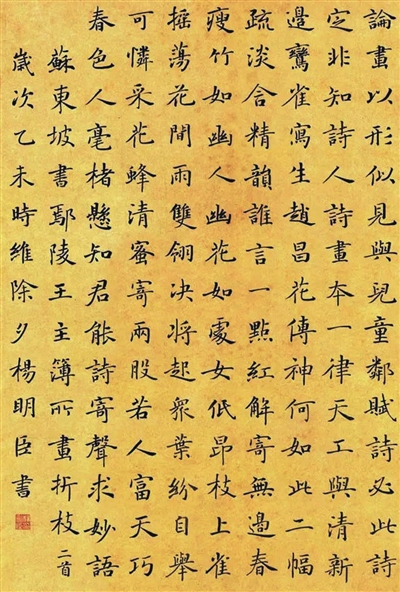 論畫以形似見與兒童鄰賦詩必此詩
定非知詩人詩畫本一律天工與清新
邊鸞雀寫生趙昌花傳神何如此二幅
疏淡含精韻誰言一點紅解寄無邊春
瘦竹如幽人幽花如處女低昂枝上雀
搖蕩花間雨雙翎决將起衆葉紛自舉
可憐采花蜂清蜜寄兩股若人富天巧
春色入毫楮懸知君能詩寄聲求妙語
蘇東坡書鄢陵王主簿所畫折枝二首
歲次乙未時維除夕楊明臣書